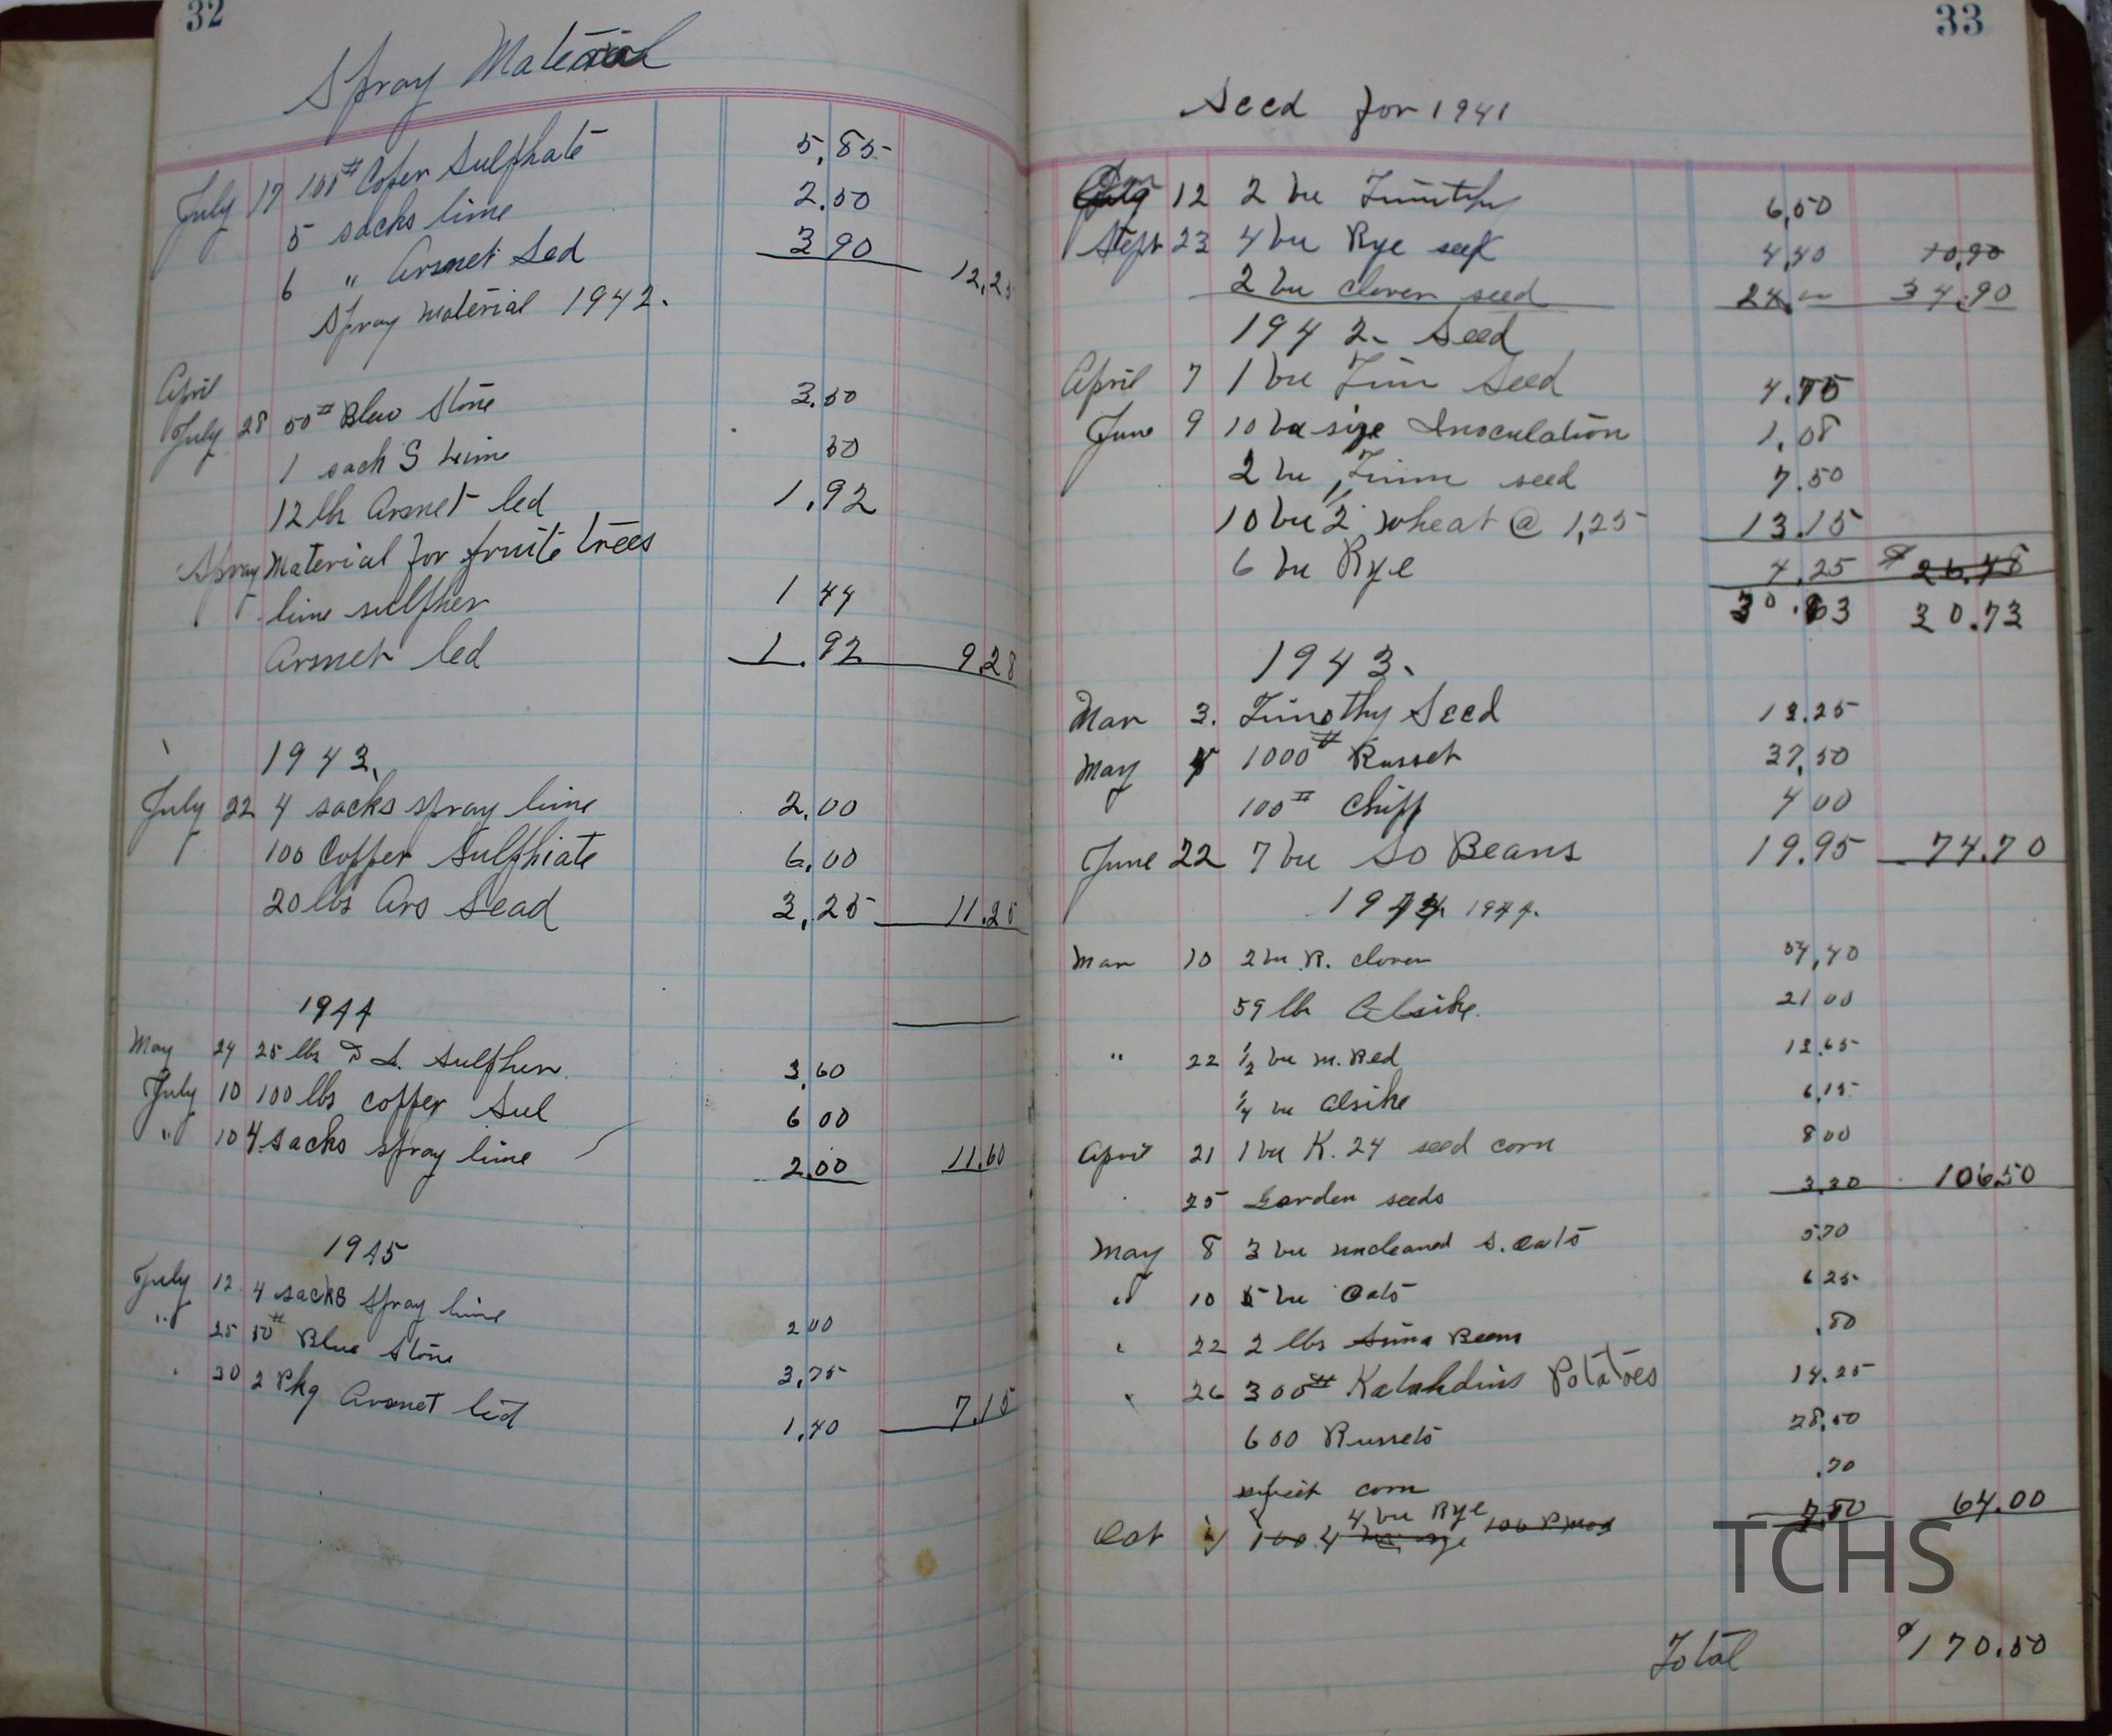 32
Spray Material
July 17 100# Coper Sulphate 5,85
5 sacks lime 2.50
6 " Arsnet Led 3 90 12,25
Spray material 1942.
April
July 28 50# Blew Stone 3.50
1 sack S Lime 50
12 lb Arsnet led 1,92
Spray Material for fruite trees
lime sulpher 1 44
Arsnet led 1.92 9,28
1943.
July 22 4 sacks spray lime 2,00
100 Copper Sulphiate 6,00
20 lbs Ars Lead 3,25 11.25
1944
May 24 25 lbs D L. Sulpher. 3,60
July 10 100 lbs copper Sul 6 00
" 10 4 sacks spray lime 2.00 11.60
1945
July 12 4 sacks spray lime 2 00
" 25 50# Blue Stone 3,75
" 30 2 Pkg Arsnet led 1,40 7.15
33
Seed for 1941
12 2 bu Timithy 6,50
Sept 23 4 bu Rye seed 4,40 10,90
2 bu clover seed 24.— 34.90
1942. Seed
April 7 1 bu Tim Seed 4.75
June 9 10 bu size Inoculation 1,08
2 bu Timm seed 7.50
10 bu 2" wheat @ 1,25 13.15
6 bu Rye 4,25 $26.48
30.73
1943.
Mar 3. Timothy Seed 13.25
May 5 1000# Russet 37,50
100# Chipp 4 00
June 22 7 bu So Beans 19.95 74.70
1944. 1944.
Mar 10 2 bu R. clover 54,40
59 lb Alsike. 21 00
" 22 ½ bu M. Red 13.65
¼ bu Alsike 6,15
April 21 1 bu K. 24 seed corn 8 00
25 Garden seeds 3.30 106.50
May 8 3 bu uncleaned S. Oats 5.70
" 10 5 bu Oats 6 25
" 22 2 lbs Lima Beans .80
" 26 300# Katahdins Potatoes 14.25
600 Russets 28,50
sweet corn .70
Oct 4 bu Rye 7,80 64.00
TCHS
Total $170.50